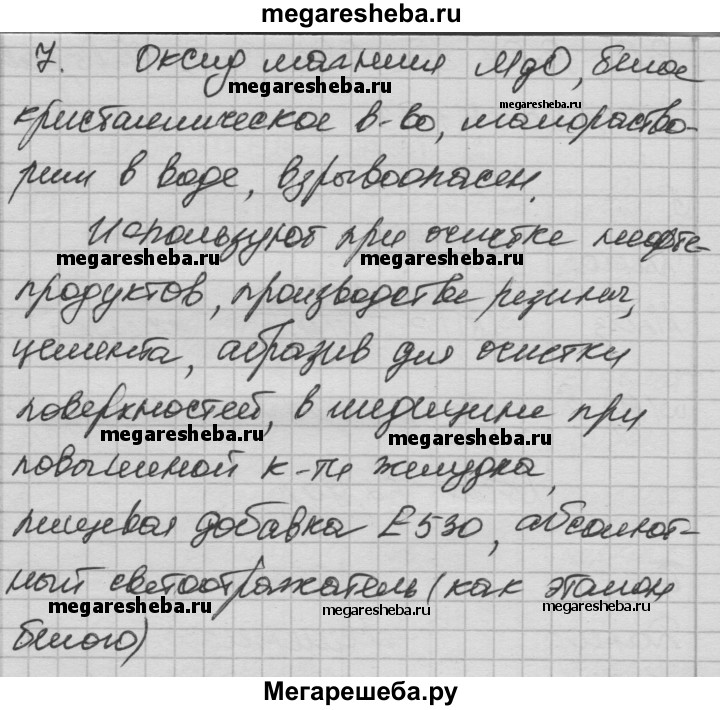 megaresheba.ru
7. Оксид магния MgO, белое
megaresheba.ru megaresheba.ru
кристаллическое в-во, малораство-
рим в воде, взрывоопасен.
Используют при очистке нефте-
megaresheba.ru megaresheba.ru
продуктов, производстве резины,
цемента, абразив для очистки
поверхностей, в медицине при
megaresheba.ru megaresheba.ru
повышенной к-ти желудка,
пищевая добавка E530, абсолют-
ный светоотражатель (как эталон
megaresheba.ru megaresheba.ru megaresheba.ru
белого)
Мегарешеба.ру